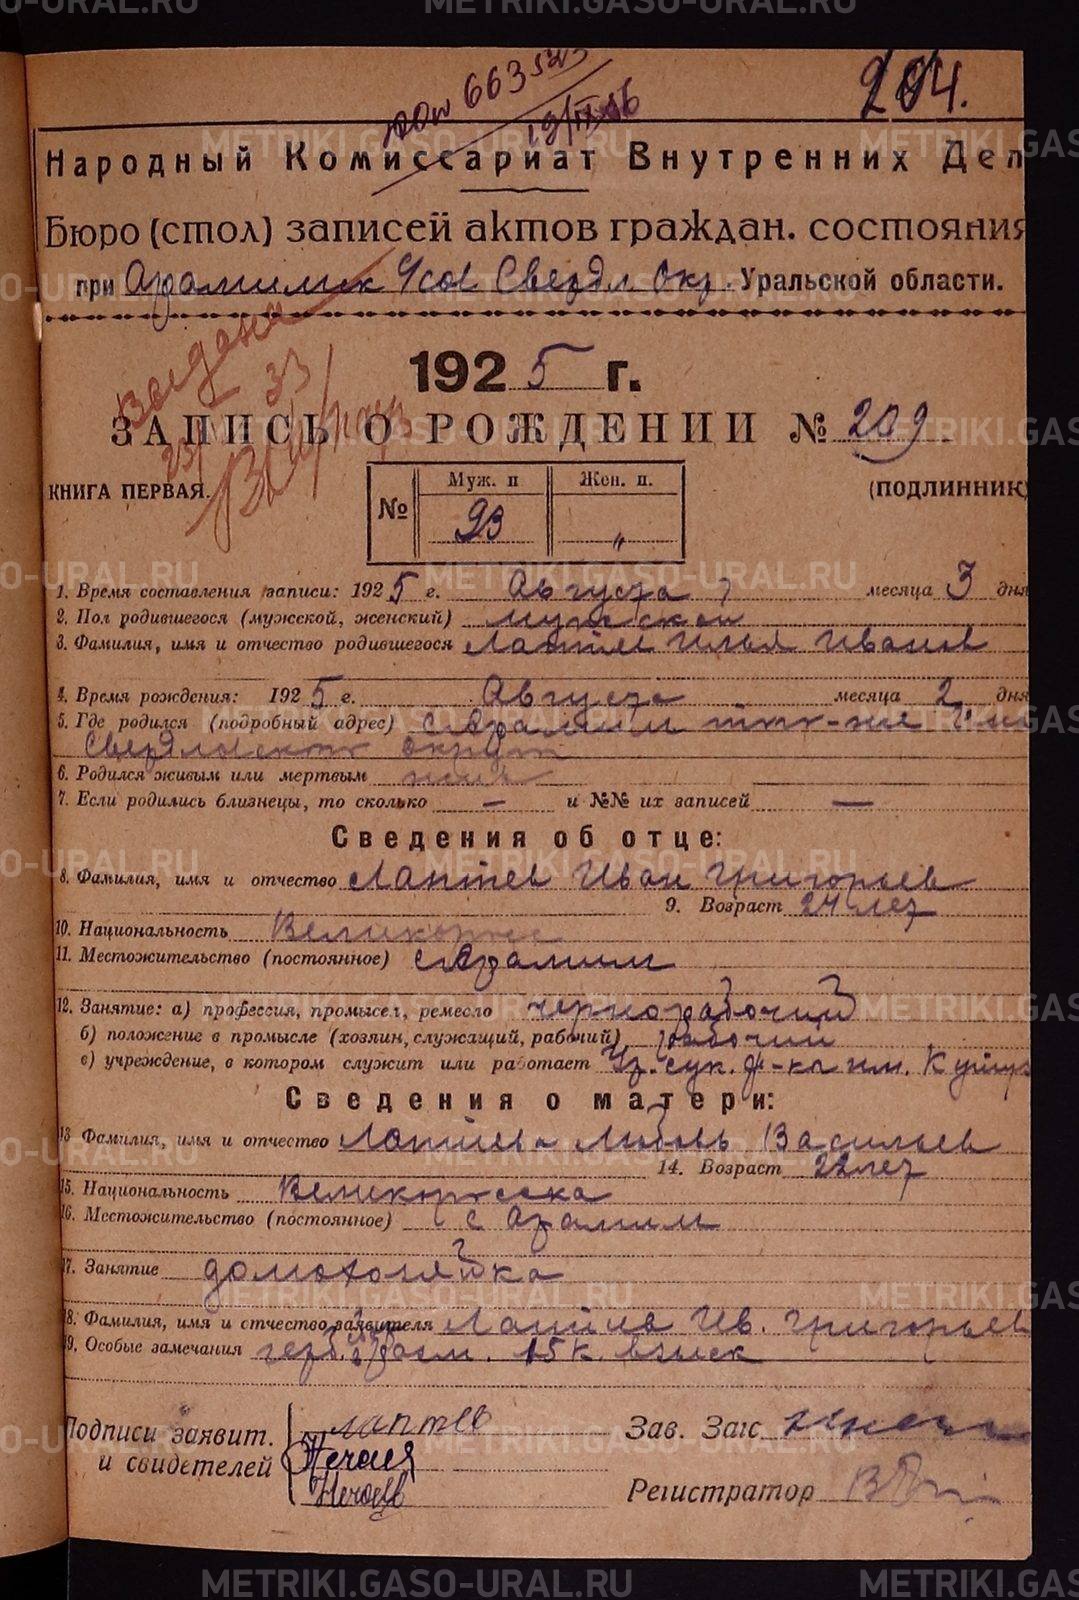 663
204.
19/IX 46
Народный Комиссариат Внутренних Дел
Бюро (стол) записей актов граждан. состояния
при Арамильск Свердл. Окр. Уральской области.
Выдана
23/ 33
1925 г.
ЗАПИСЬ О РОЖДЕНИИ № 209.
КНИГА ПЕРВАЯ. (ПОДЛИННИК)
№ Муж. п Жен. п.
93 "
1. Время составления записи: 1925 г. Августа месяца 3 дня
2. Пол родившегося (мужской, женский) мужской
3. Фамилия, имя и отчество родившегося Лаптев Илья Иванов
4. Время рождения: 1925 г. Августа месяца 2 дня
5. Где родился (подробный адрес) с. Арамили
Свердловского округа
6. Родился живым или мертвым жив
7. Если родились близнецы, то сколько — и №№ их записей —
Сведения об отце:
8. Фамилия, имя и отчество Лаптев Иван Григорьев
9. Возраст 24 лет
10. Национальность Великоросс
11. Местожительство (постоянное) с Арамили
12. Занятие: а) профессия, промысел, ремесло чернорабочий
б) положение в промысле (хозяин, служащий, рабочий) рабочий
в) учреждение, в котором служит или работает Ур. сук. ф-ка им.
Сведения о матери:
13 Фамилия, имя и отчество Лаптева Любовь Васильев
14. Возраст 22 лет
15. Национальность Великоросска
16. Местожительство (постоянное) с Арамили
17. Занятие домохозяйка
18. Фамилия, имя и отчество заявителя Лаптев Ив. Григорьев
19. Особые замечания герб. 15 к. взыск
Подписи заявит. Лаптев Зав. Загс
и свидетелей
Регистратор
METRIKI.GASO-URAL.RU